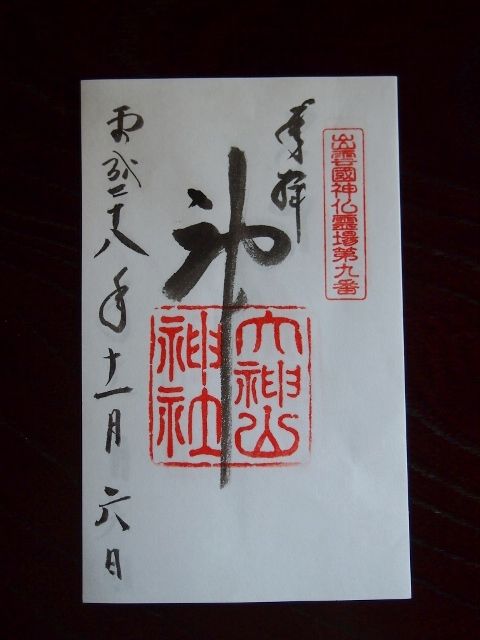 出雲國神仏霊場第九番
奉拝
神
大神山
神社
平成二十八年十一月六日